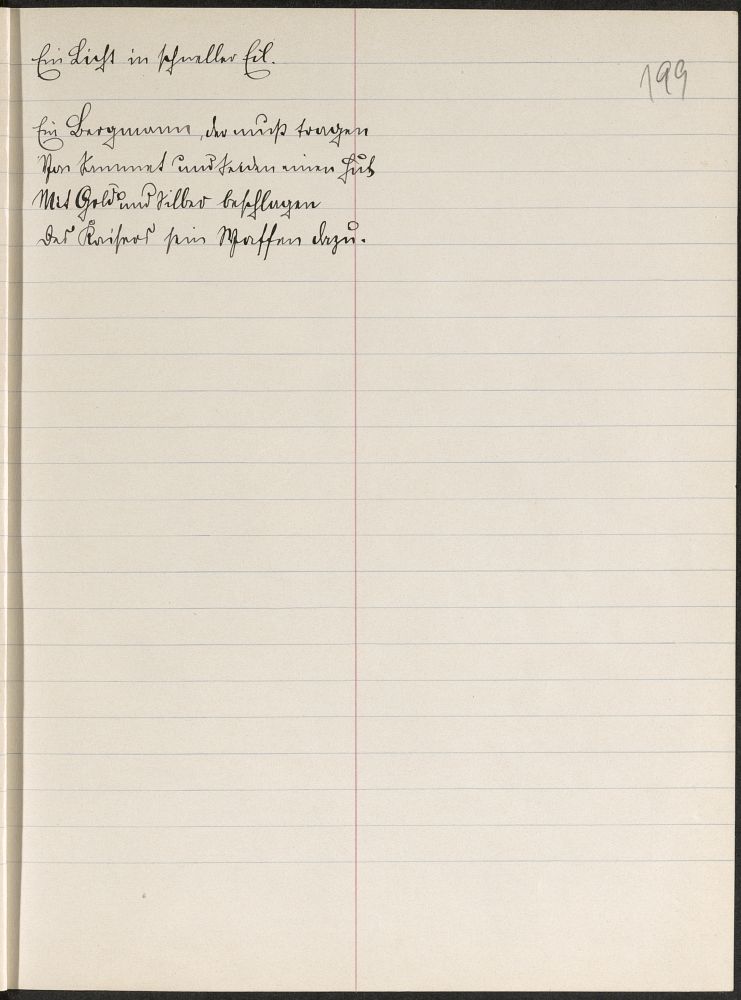 Ein Licht in schneller Eil.
199
Ein Bergmann, der muß tragen
Von Sammet und Seiden einen Hut
Mit Gold und Silber beschlagen
Des Kaisers sein Waffen dazu.